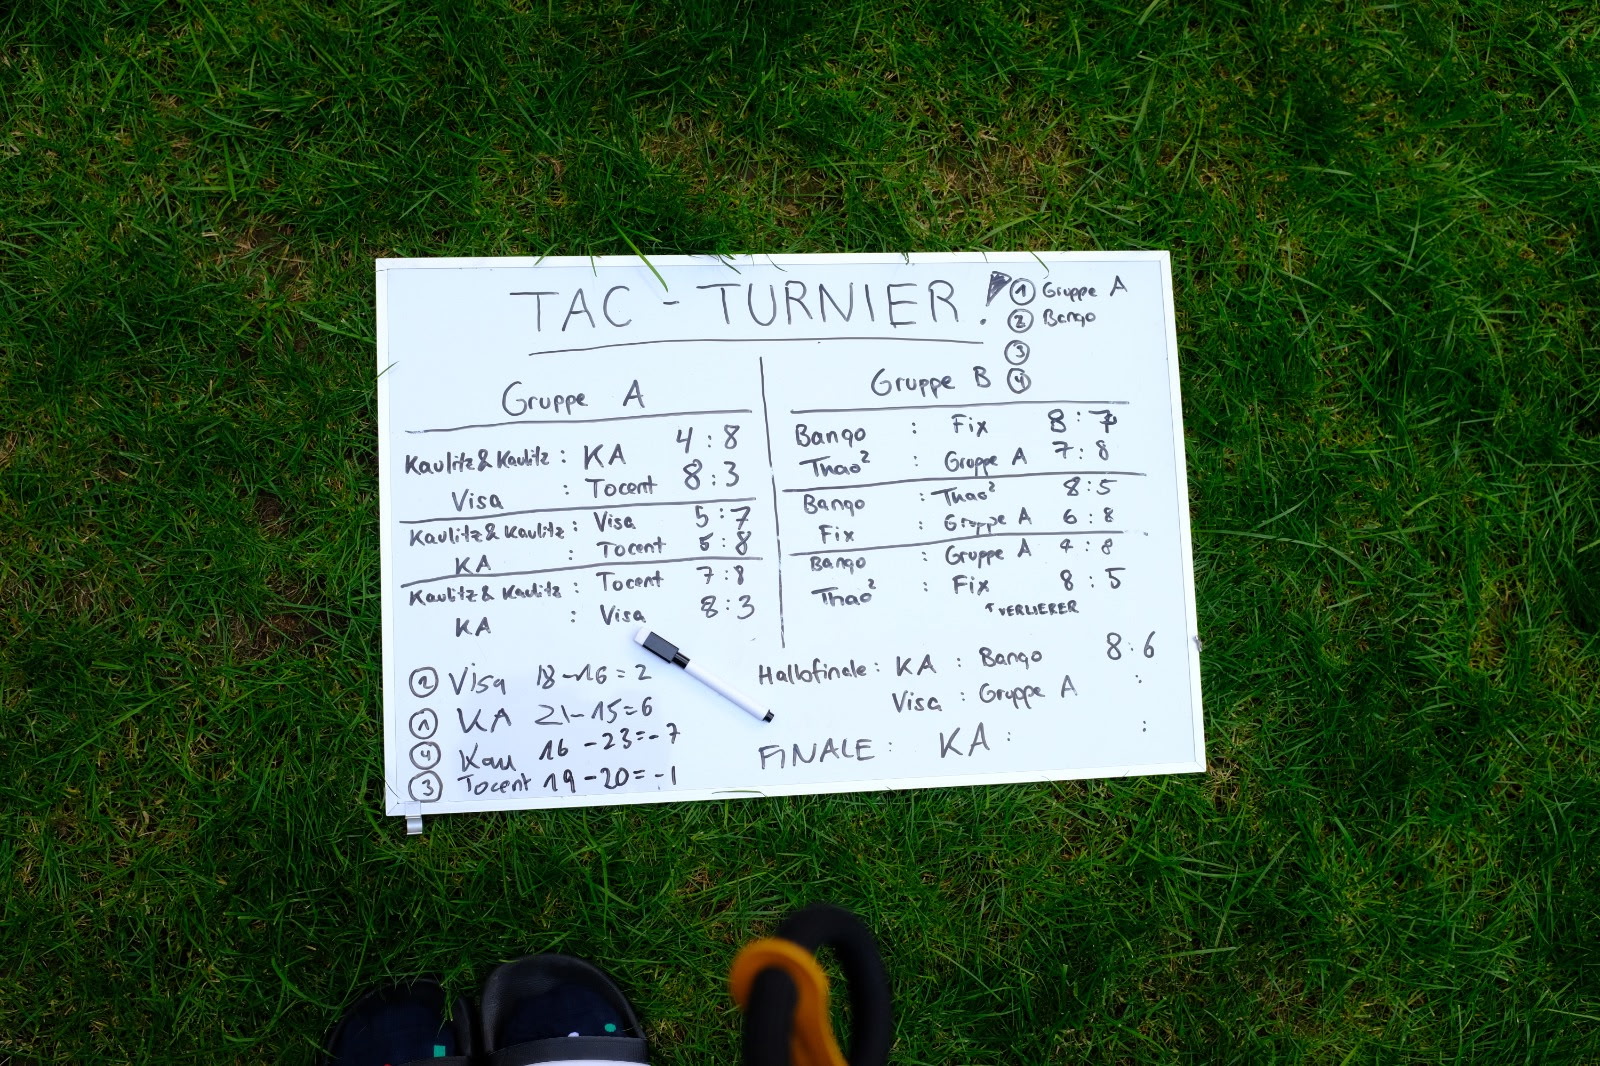 TAC - TURNIER!
① Gruppe A
② Bango
③
④
Gruppe A
Kaulitz & Kaulitz : KA 4:8
Visa : Tocent 8:3
Kaulitz & Kaulitz : Visa 5:7
KA : Tocent 5:8
Kaulitz & Kaulitz : Tocent 7:8
KA : Visa 8:3
② Visa 18-16=2
① KA 21-15=6
④ Kau 16-23=-7
③ Tocent 19-20=-1
Gruppe B
Bango : Fix 8:7
Thao² : Gruppe A 7:8
Bango : Thao² 8:5
Fix : Gruppe A 6:8
Bango : Gruppe A 4:8
Thao² : Fix 8:5
↑ VERLIERER
Hallofinale: KA : Bango 8:6
Visa : Gruppe A :
FINALE: KA : :